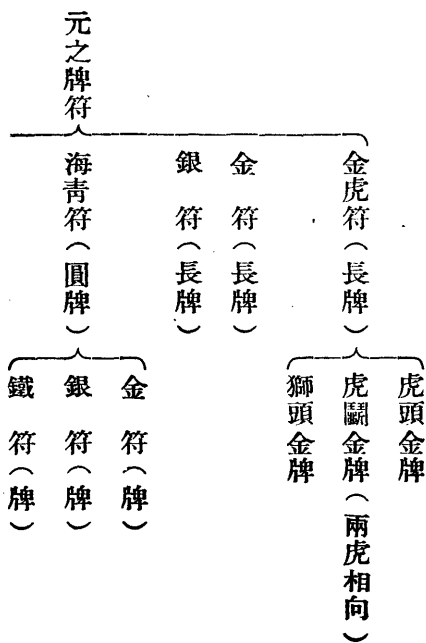 元之牌符
金虎符（長牌）
虎頭金牌
虎鬭金牌（兩虎相向）
獅頭金牌
金　符（長牌）
銀　符（長牌）
海靑符（圓牌）
金　符（牌）
銀　符（牌）
鐵　符（牌）